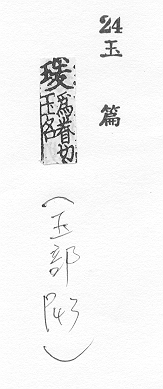 24 玉篇
瑗 為眷切 玉名
(玉部 P43)